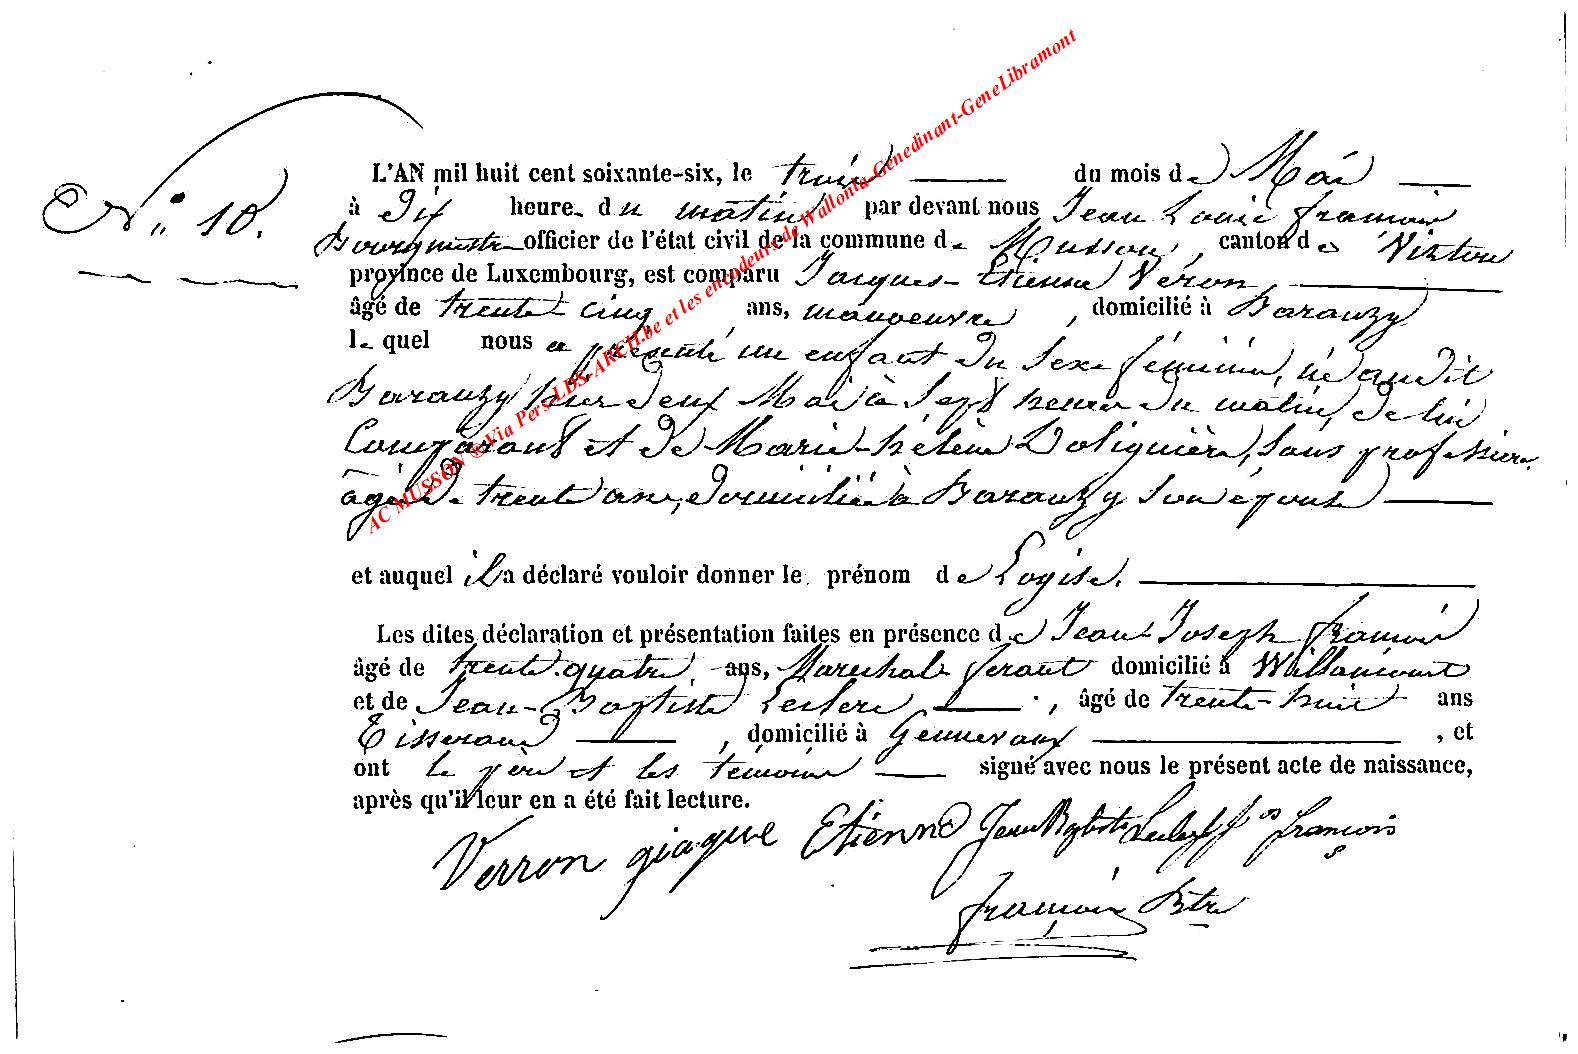 N° 10.
L'AN mil huit cent soixante-six, le trois du mois de Mai
à Dix heures du matin par devant nous Jean Louis François
Bourgmestre officier de l'état civil de la commune de Musson, canton de Virton
province de Luxembourg, est comparu Jacques-Etienne Véron,
âgé de trente cinq ans, manoeuvre, domicilié à Baranzy
lequel nous a présenté un enfant du sexe féminin, né audit
Baranzy hier deux Mai à sept heures du matin, de lui
Comparant et de Marie-hélène Doliguière, sans profession
âgée de trente ans, domiciliée à Baranzy son épouse
et auquel il a déclaré vouloir donner le prénom de Loyise.
Les dites déclaration et présentation faites en présence de Jean-Joseph françois
âgé de trente-quatre, ans, Marechal ferant domicilié à Willancourt
et de Jean-Baptiste Leclere, âgé de trente-huit ans
Tisserand, domicilié à Gennevaux, et
ont le père et les témoins signé avec nous le présent acte de naissance,
après qu'il leur en a été fait lecture.
Verron giaque Etienne Jean Bptiste Leclerf J os françois
françois Btre
AC MUSSON ® Via Pers-LDS-ARCH.be et les encodeurs de Wallonia-Genedinant-GeneLibramont